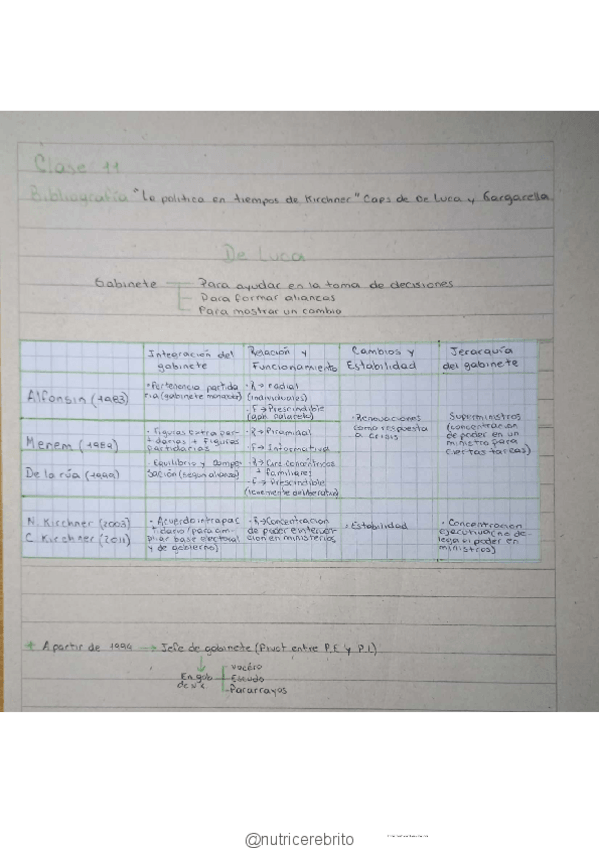 Clase 11
Bibliografía "La política en tiempos de Kirchner" Caps de De Luca y Gargarella
De Luca
Gabinete
Para ayudar en la toma de decisiones
Para formar alianzas
Para mostrar un cambio
Integración del gabinete
Relación y Funcionamiento
Cambios y Estabilidad
Jerarquía del gabinete
Alfonsín (1983)
· Pertenencia partida
ria (gabinete monocolor)
· R → radial
(individuales)
· F → Prescindible
· Renovaciones
como respuesta
a crisis
Superministros
(concentración
de poder en un
ministro para
ciertas tareas)
Menem (1989)
· Figuras extrapar-
tidarias + figuras
partidarias
· R → Piramidal
· F → Informativa
De la rúa (1999)
· Equilibrio y compen
sación (según alianza)
· R → Circ. concéntricos
+ familiares
· F → Prescindible
(levemente deliberativa)
N. Kirchner (2003)
C. Kirchner (2011)
· Acuerdo intrapar
tidario (para am-
pliar base electoral
y de gobierno)
· R → Concentracion
de poder e interven-
cion en ministerios
· Estabilidad
· Concentracion
ejecutiva (no de-
lega el poder en
ministros)
+ A partir de 1994 → Jefe de gabinete (Pivot entre P.E y P.L)
En gob
vocero
Escudo
Pararrayos
@nutricerebrito